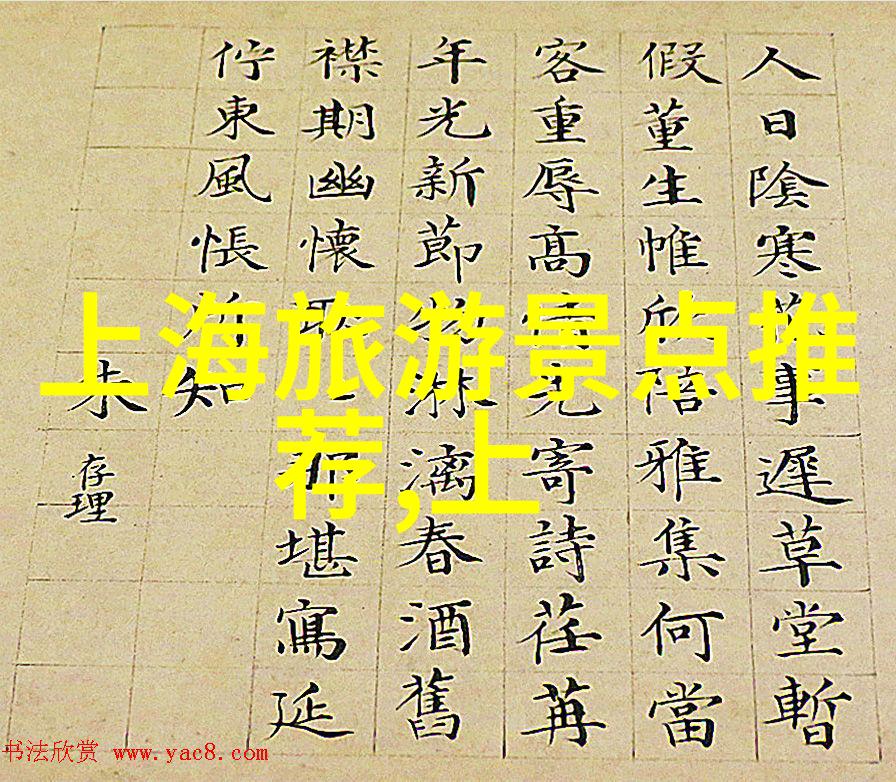 上海旅游景点推
荐,上
人日陰寒事遲草堂暫
假董生帷欣陪雅集何當
客重辱高先寄詩荏苒
年光新節物淋漓春酒舊
襟期幽懷那堪寫延
佇東風悵知
未
存理
书法欣赏 www.yac8.com